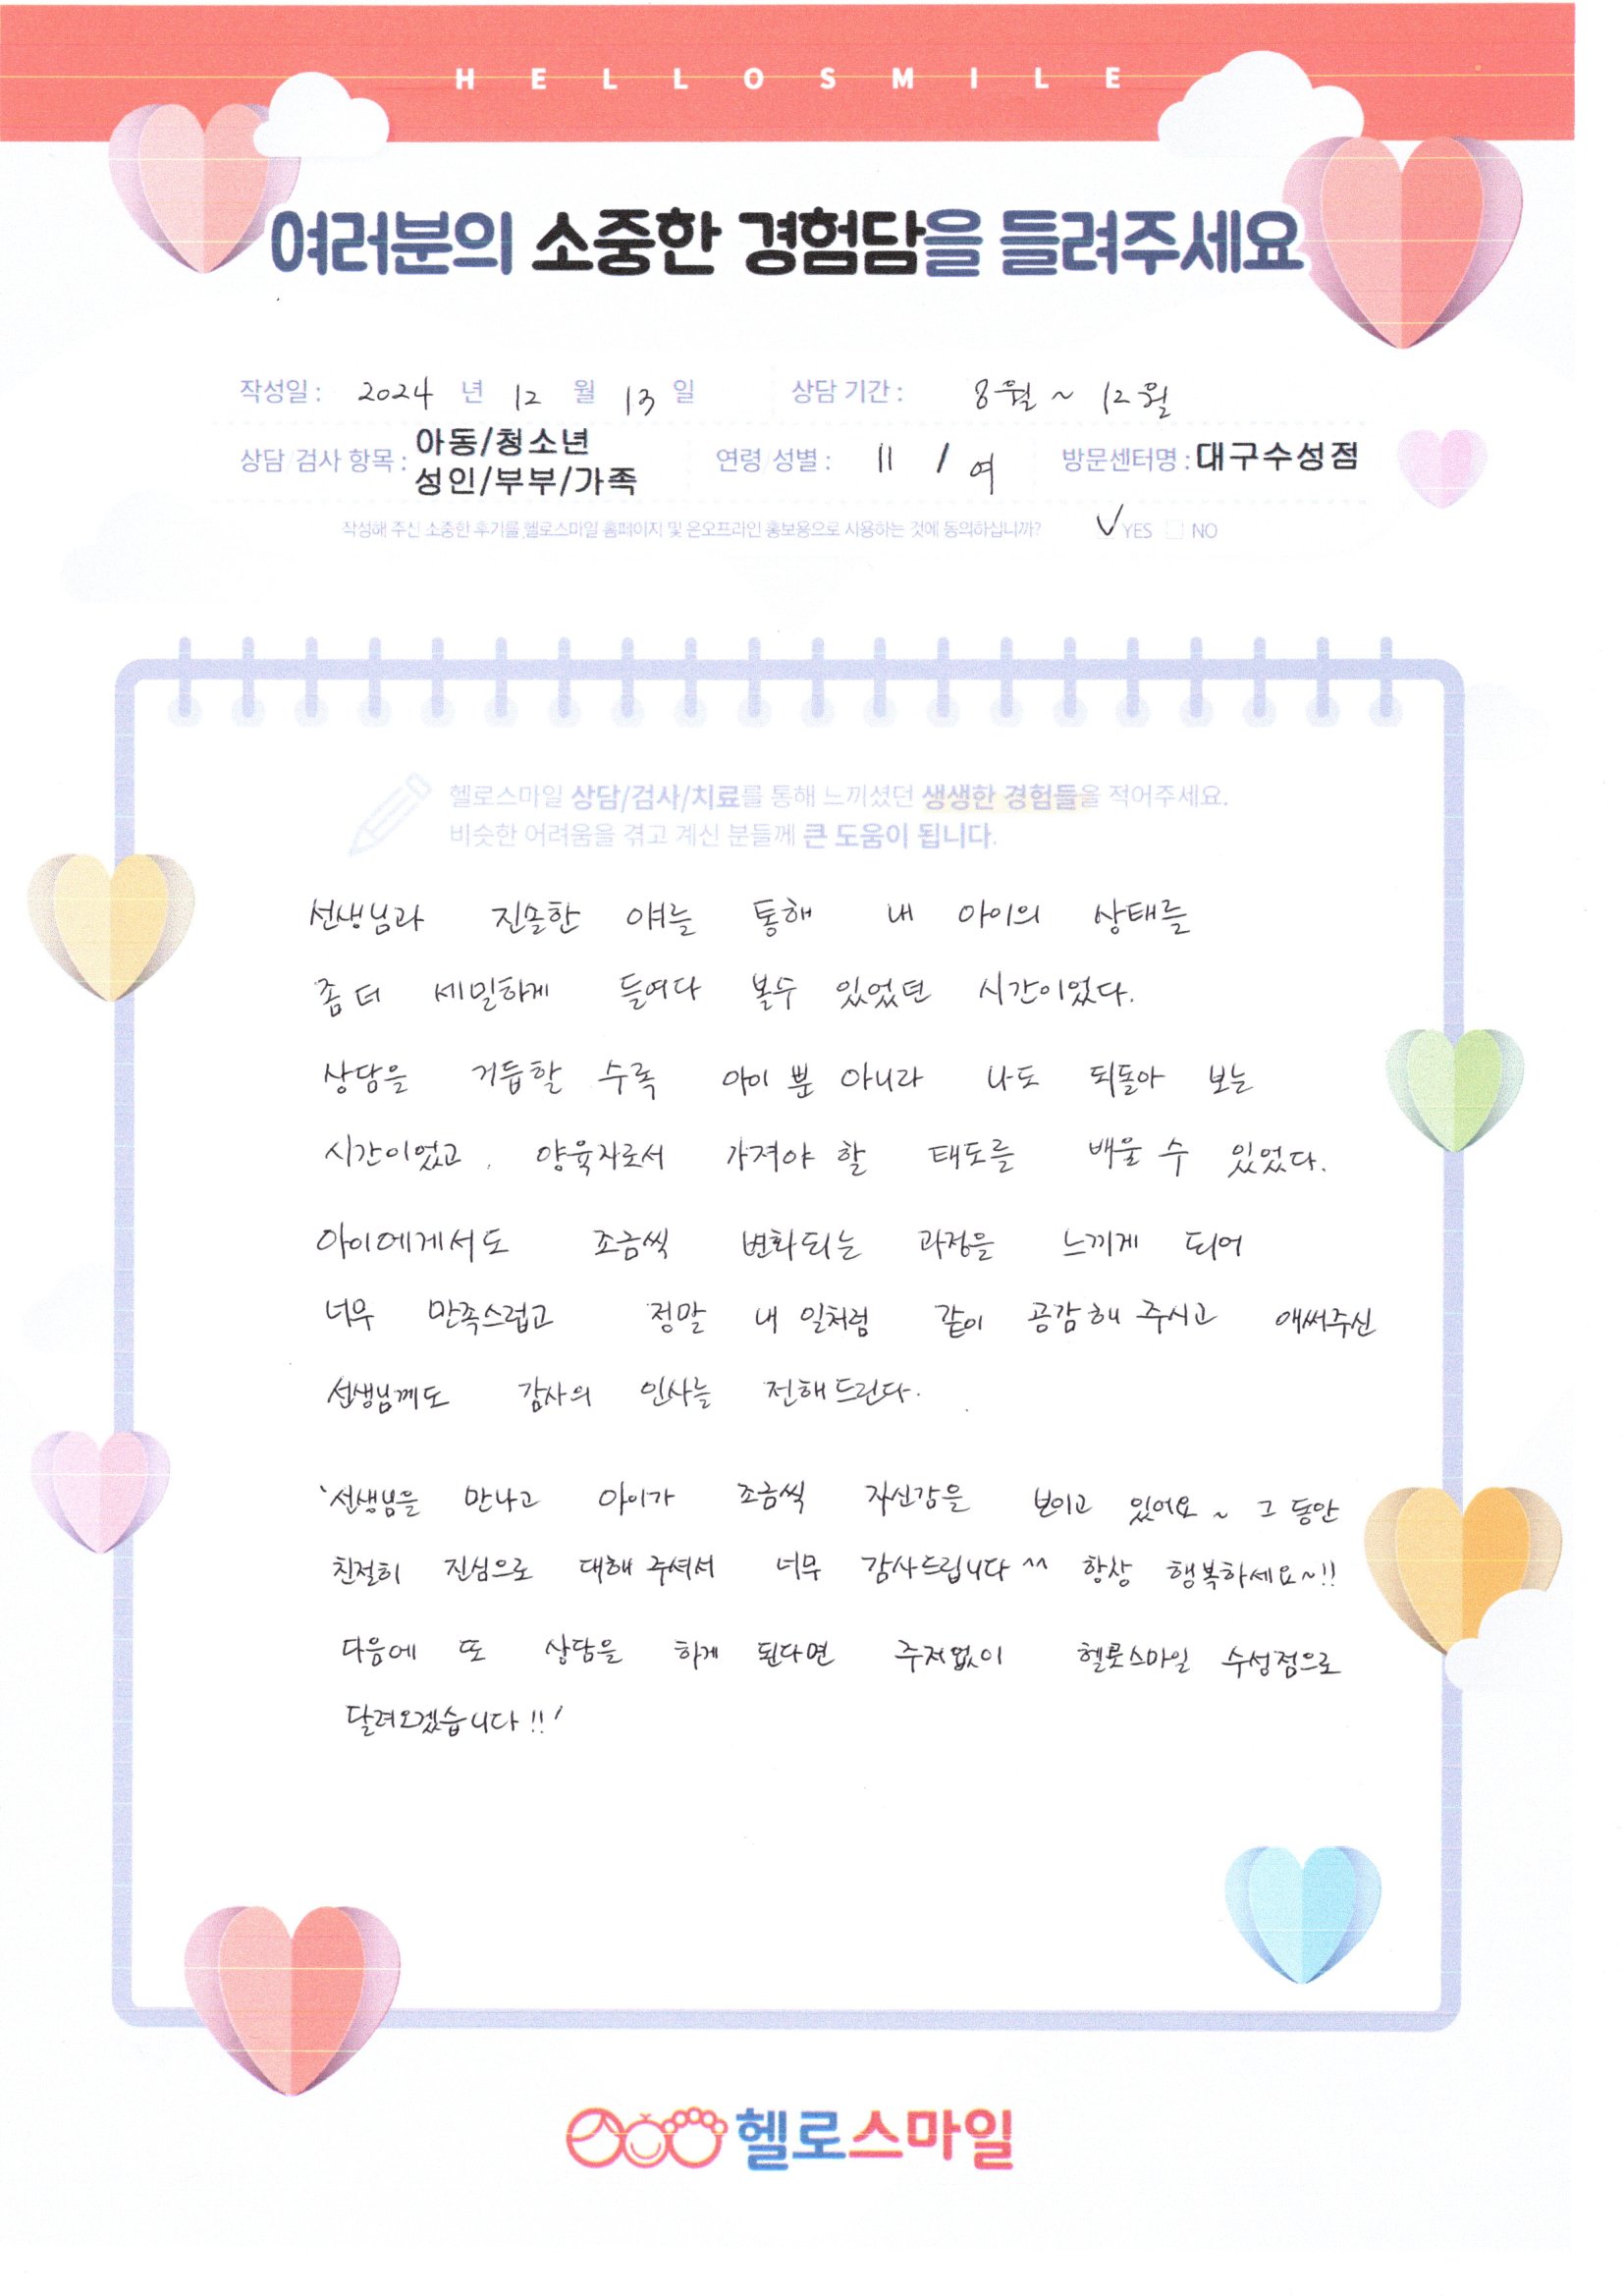 HELLOSMILE
여러분의 소중한 경험담을 들려주세요
작성일 : 2024 년 12 월 13 일 상담 기간 : 8월 ~ 12월
상담 검사 항목 : 아동/청소년 성인/부부/가족 연령 성별 : 11 / 여 방문센터명 : 대구수성점
작성해 주신 소중한 후기를 헬로스마일 홈페이지 및 온오프라인 홍보용으로 사용하는 것에 동의하십니까? ✓ YES NO
헬로스마일 상담/검사/치료를 통해 느끼셨던 생생한 경험들을 적어주세요.
비슷한 어려움을 겪고 계신 분들께 큰 도움이 됩니다.
선생님과 진솔한 얘를 통해 내 아이의 상태를
좀 더 세밀하게 들여다 볼수 있었던 시간이었다.
상담을 거듭할 수록 아이 뿐 아니라 나도 되돌아 보는
시간이었고, 양육자로서 가져야 할 태도를 배울 수 있었다.
아이에게서도 조금씩 변화되는 과정을 느끼게 되어
너무 만족스럽고 정말 내 일처럼 같이 공감해 주시고 애써주신
선생님께도 감사의 인사를 전해드린다.
'선생님을 만나고 아이가 조금씩 자신감을 보이고 있어요~ 그 동안
친절히 진심으로 대해 주셔서 너무 감사드립니다^^ 항상 행복하세요~!!
다음에 또 상담을 하게 된다면 주저없이 헬로스마일 수성점으로
달려오겠습니다!!'
헬로스마일